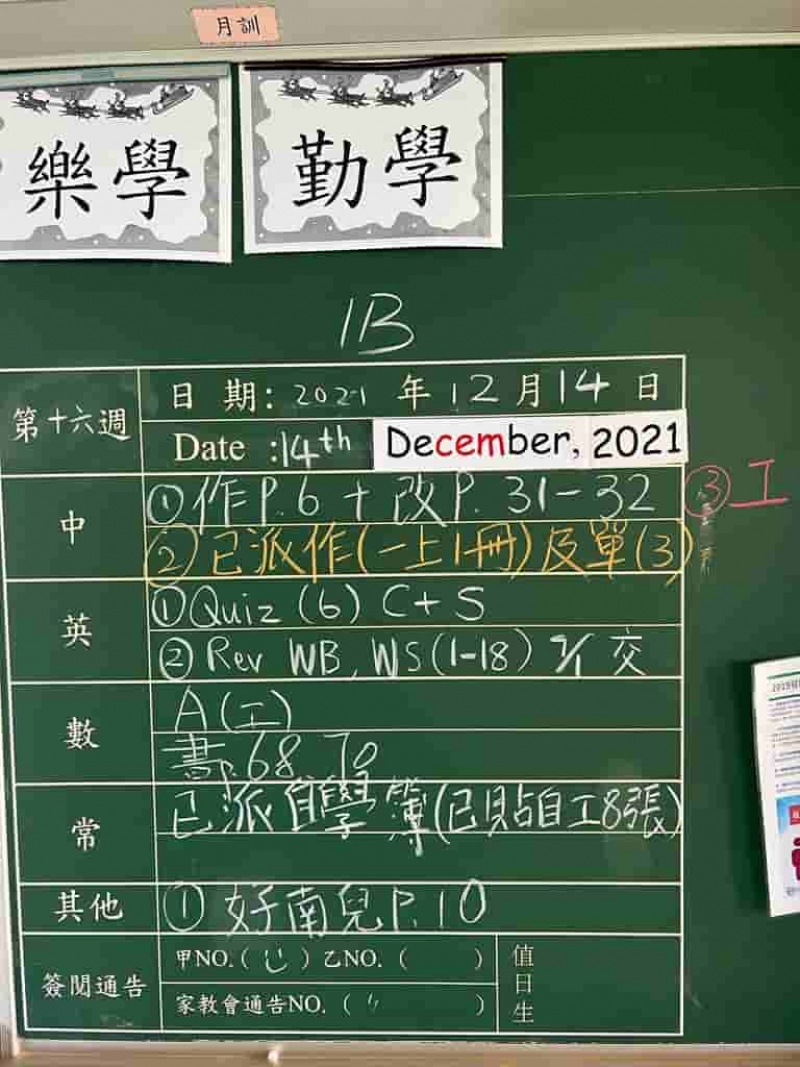 月訓
樂學 勤學
1B
第十六週
日期: 2021 年 12 月 14 日
Date :14th December, 2021
中
①作P.6 + 改P. 31-32 ③工
②已派作(一上1冊)及單(3)
英
①Quiz (6) C+S
②Rev WB, WS(1-18) 交
數
A(工)
書p.68 70
常
已派自學簿(已貼自工8張)
其他
①好南兒P.10
簽閱通告
甲NO.( ) 乙NO. ( )
家教會通告NO. ( )
值日生